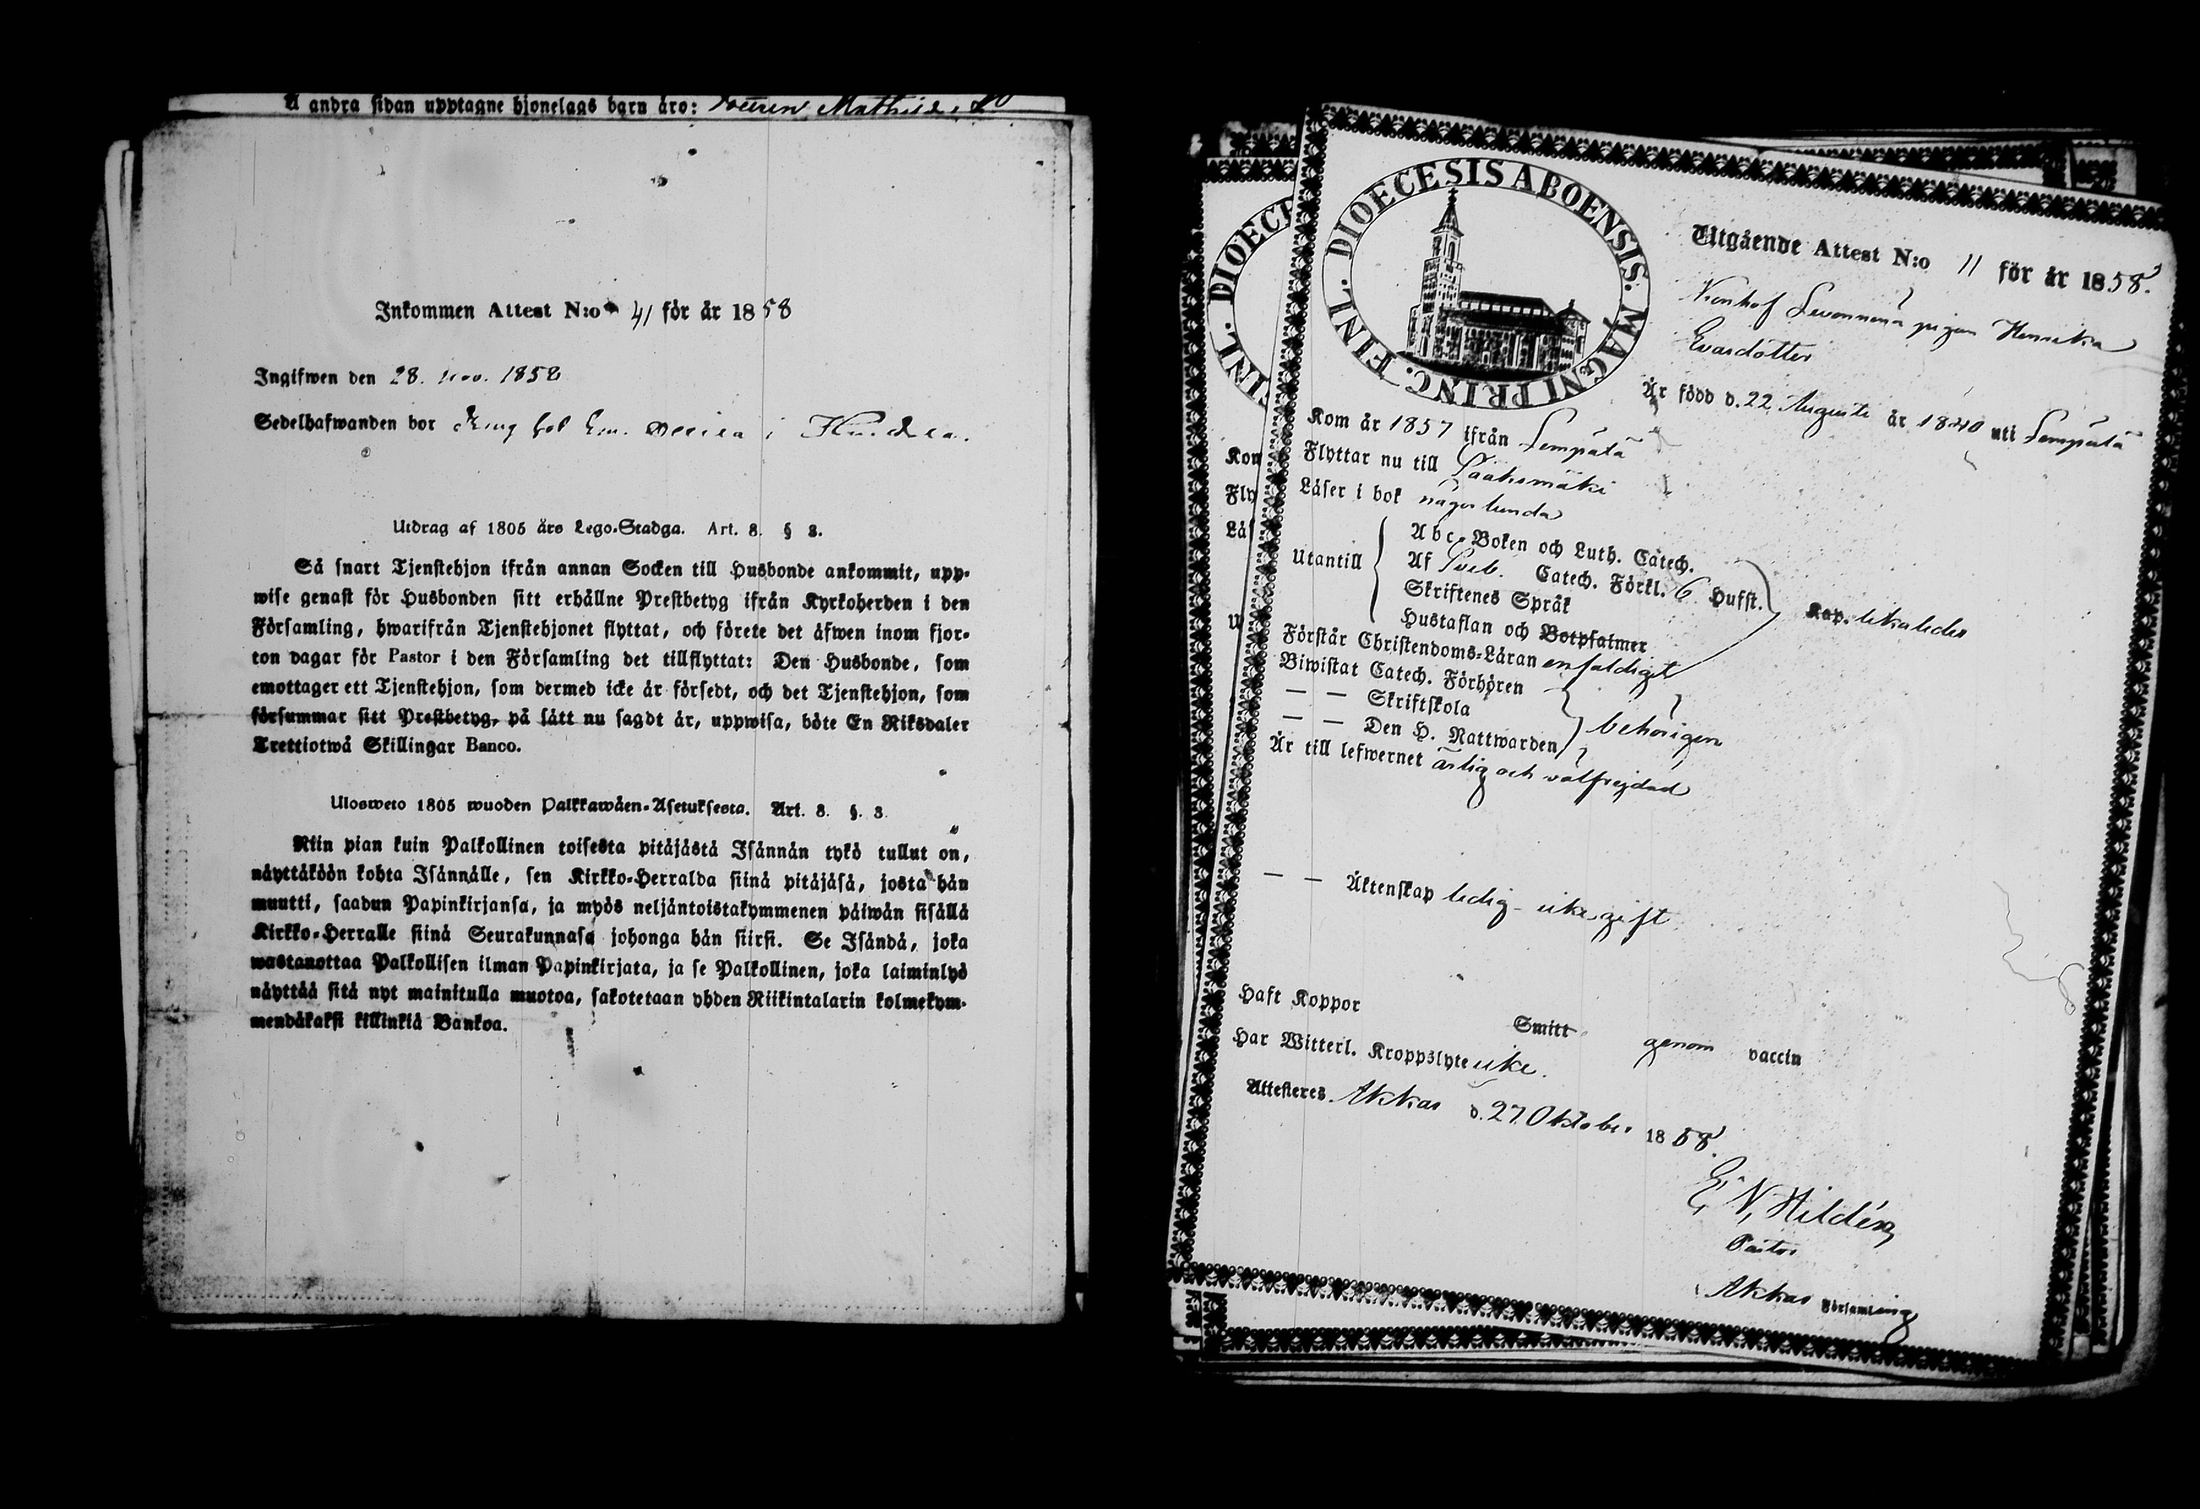 å andra sidan upptagne hjonelags barn äro:
Inkommen Attest N:o 41 för år 1858
Ingifwen den 28. nov. 1858
Sedelhafwanden bor i
Utdrag af 1805 års Lego-Stadga. Art. 8. § 3.
Så snart Tjenstehjon ifrån annan Socken till Husbonde ankommit, upp-
wise genast för Husbonden sitt erhållne Prestbetyg ifrån Kyrkoherden i den
Församling, hwarifrån Tjenstehjonet flyttat, och förete det äfwen inom fjor-
ton dagar för Pastor i den Församling det tillflyttat: Den Husbonde, som
emottager ett Tjenstehjon, som dermed icke är försedt, och det Tjenstehjon, som
försummar sitt Prestbetyg, på sätt nu sagdt är, uppwisa, böte En Riksdaler
Trettiotwå Skillingar Banco.
Ulosweto 1805 wuoden Palkkawäen-Asetuksesta. Art. 8. §. 3.
Niin pian kuin Palkollinen toisesta pitäjästä Isännän tykö tullut on,
näyttäköön kohta Isännälle, sen Kirkko-Herralda siinä pitäjäsä, josta hän
muutti, saadun Papinkirjansa, ja myös neljäntoistakymmenen päiwän sisällä
Kirkko-Herralle siinä Seurakunnasa johonga hän siirsi. Se Isändä, joka
wastanottaa Palkollisen ilman Papinkirjata, ja se Palkollinen, joka laiminlyö
näyttää sitä nyt mainitulla muotoa, sakotetaan yhden Riikintalarin kolmekym-
mendäkaksi killinkiä Bankoa.
DIOECESIS ABOENSIS. MAGNI PRINC. FINL.
Utgående Attest N:o 11 för år 1858.
pigan Henrika
Evasdotter
Är född d. 22 Augusti år 1840 uti Lempäälä
Kom år 1857 ifrån Lempäälä
Flyttar nu till Sääksmäki
Läser i bok någorlunda
Utantill
Abc-Boken och Luth. Catech.
Af Sveb. Catech. Förkl. 6 Hufst.
Skriftenes Språk
Hustaflan och Botpsalmer
Kap. likaledes
Förstår Christendoms-Läran enfaldigt
Biwistat Catech. Förhören
— — Skriftskola
— — Den H. Nattwarden
behörigen
Är till lefwernet ärlig och välfrejdad
— — Äktenskap ledig – icke gift
Haft Koppor Smitt genom vaccin
Har Witterl. Kroppslyte icke.
Attesteres. Akkas d. 27 Oktober 1858.
E. N. Hildén
Pastor
Akkas Församling